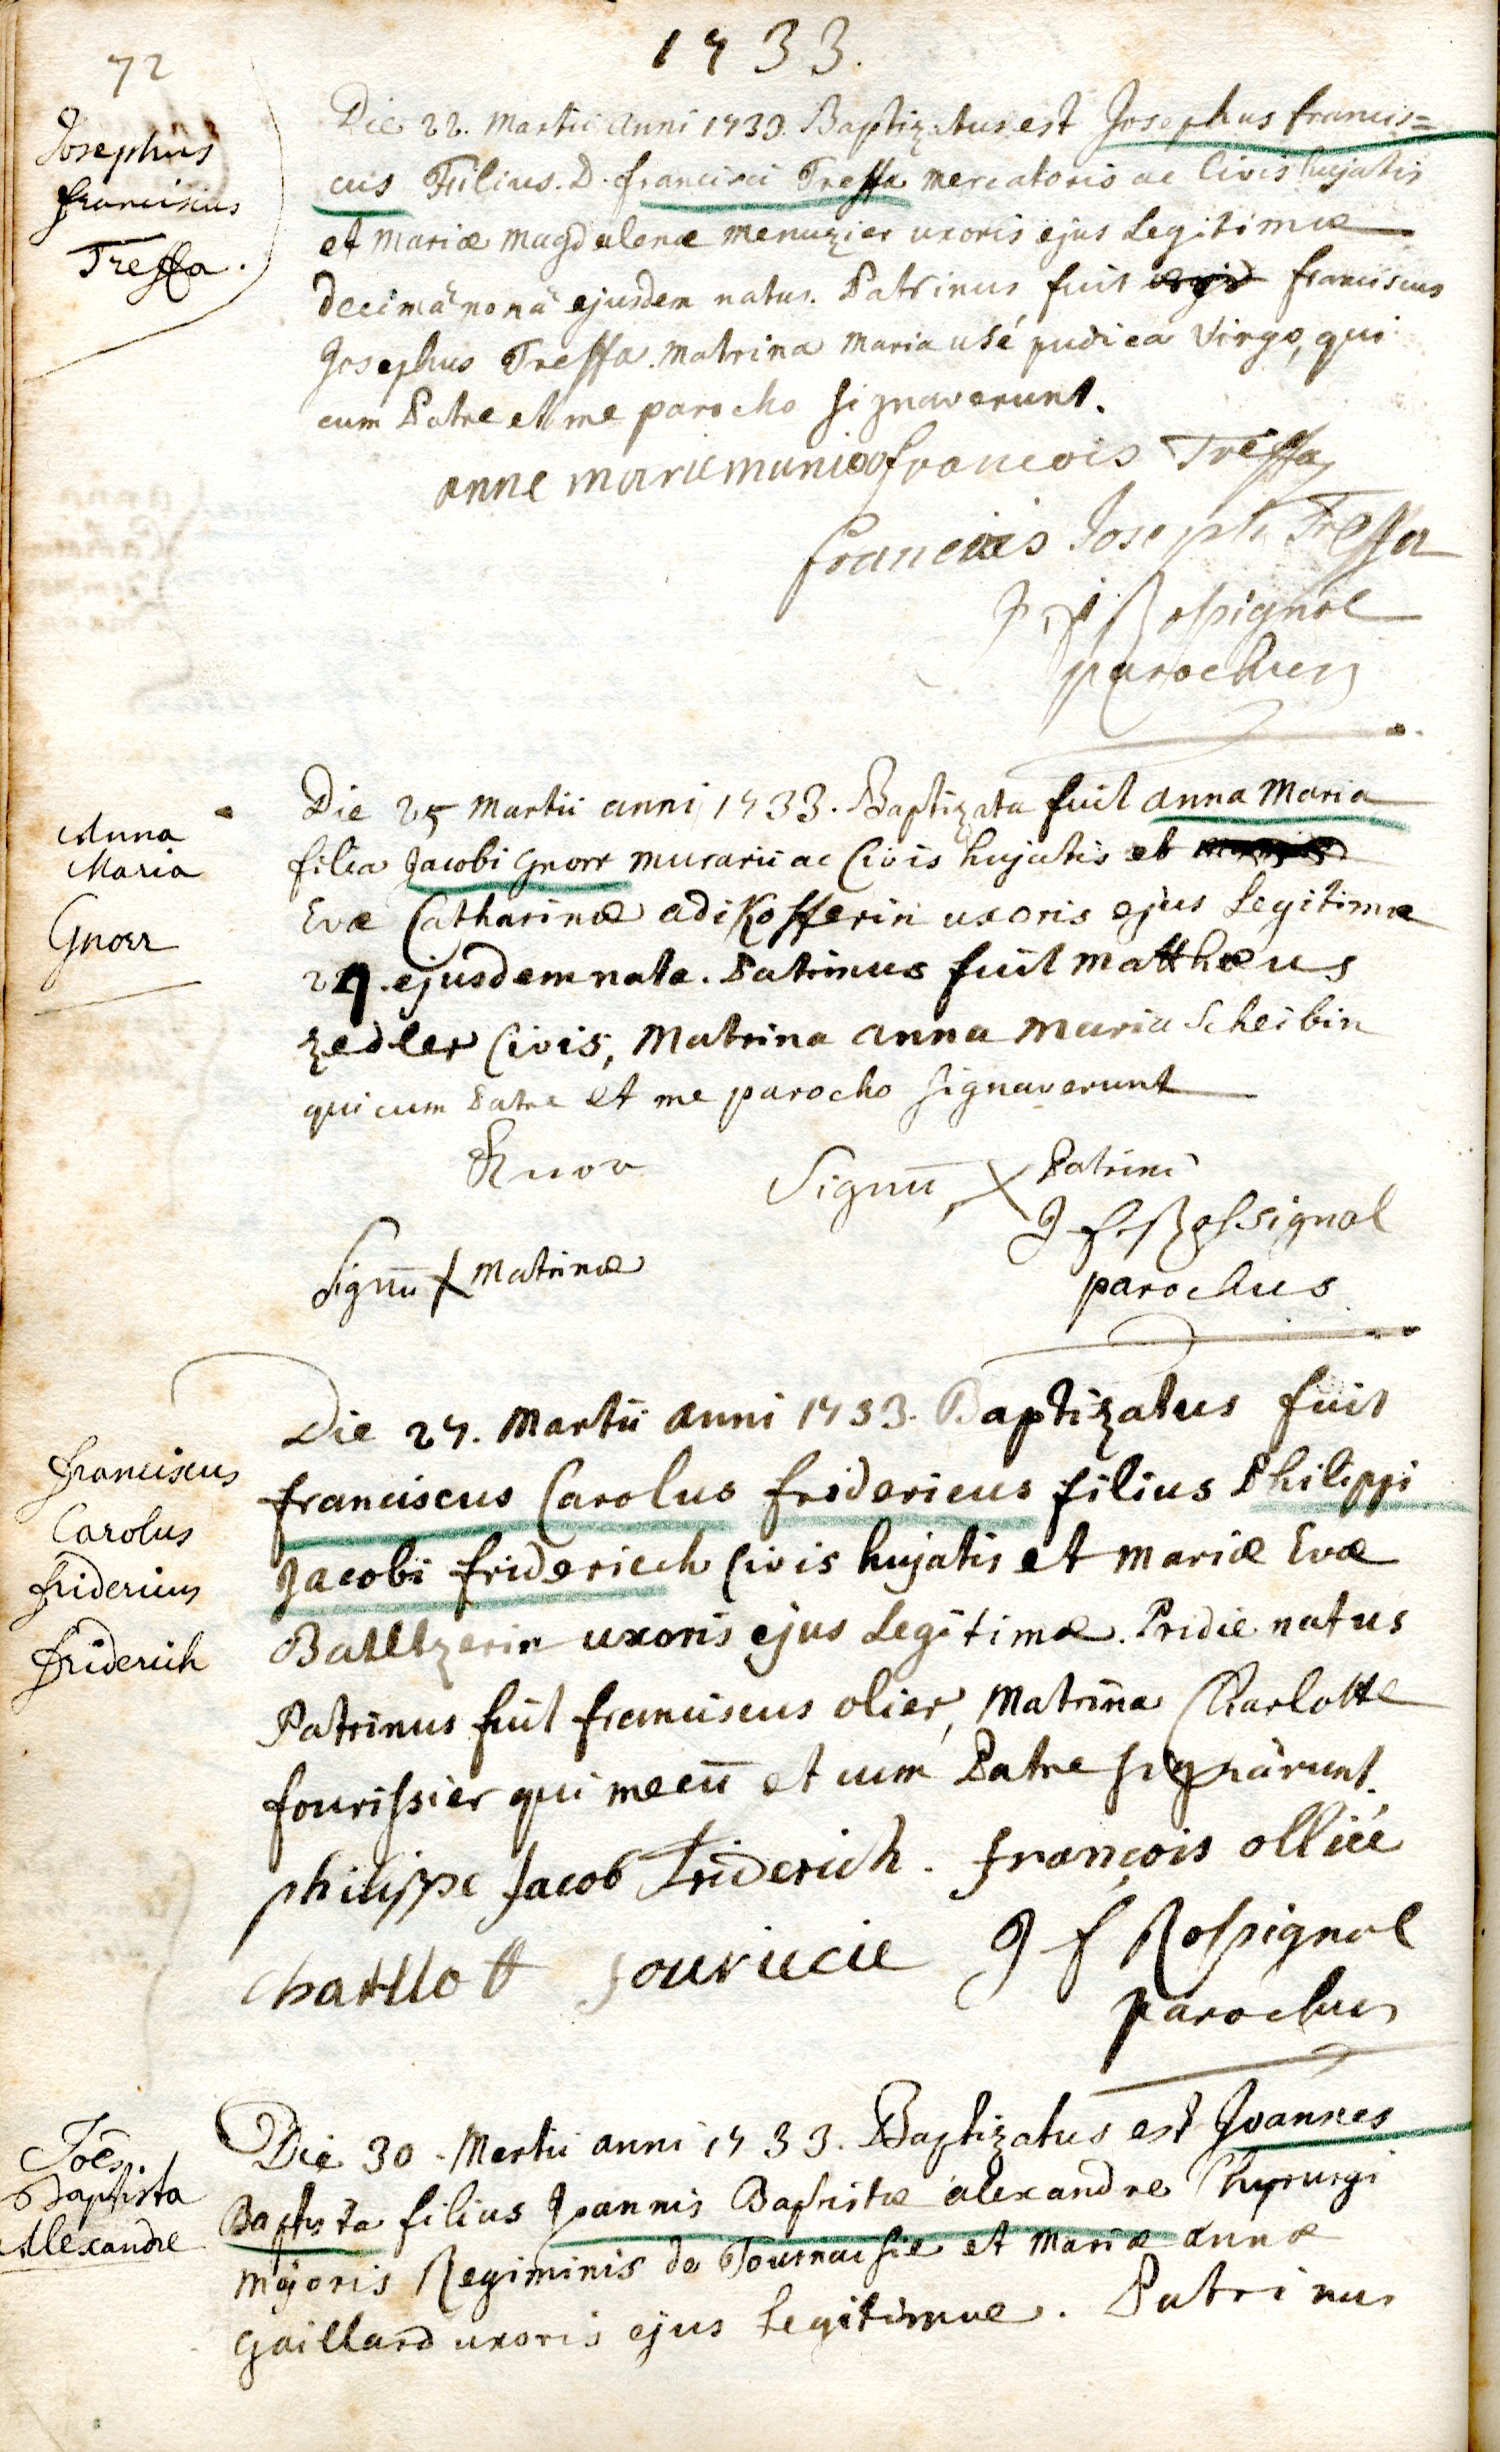 72
1733.
Josephus
Franciscus
Treffa.
Die 22. Martii Anni 1733. Baptizatus est Josephus francis=
cus Filius. D. francisci Treffa mercatoris ac Civis hujatis
et Mariæ Magdalenæ Menuzier uxoris ejus Legitimæ
decimâ nonâ ejusdem natus. Patrinus fuit franciscus
Josephus Treffa. Matrina Maria usé pudica Virgo, qui
cum Patre et me parocho signaverunt.
anne marie francois Treffa
francois Joseph Treffa
J f Rossignol
parochus
Anna
Maria
Gnorr
Die 25 Martii anni 1733. Baptizata fuit anna Maria
filia Jacobi Gnorr murarii ac Civis hujatis et
Evæ Catharinæ adikofferin uxoris ejus Legitimæ
24. ejusdem nata. Patrinus fuit Matthæus
Zedler Civis, Matrina anna Maria Scheibin
qui cum Patre et me parocho signaverunt
Knor
Signū X Patrini
J f Rossignol
Signū X Matrinæ
parochus
Franciscus
Carolus
fridericus
friderich
Die 27. Martii anni 1733. Baptizatus fuit
franciscus Carolus fridericus filius Philippi
Jacobi friderich Civis hujatis et Mariæ Evæ
Balltzerin uxoris ejus Legitimæ. Pridie natus
Patrinus fuit franciscus olier, Matrina Charlotte
fourissier qui mecū et cum Patre signârunt.
philippe Jacob Friderich. françois ollié
charllott fouriucie J f Rossignol
parochus
Joēs
Baptista
Alexandre
Die 30. Martii anni 1733. Baptizatus est Joannes
Baptista filius Joannis Baptistæ alexandre Chyrurgi
Majoris Regiminis de Tournaisie et Mariæ annæ
Gaillard uxoris ejus Legitimæ. Patrinus